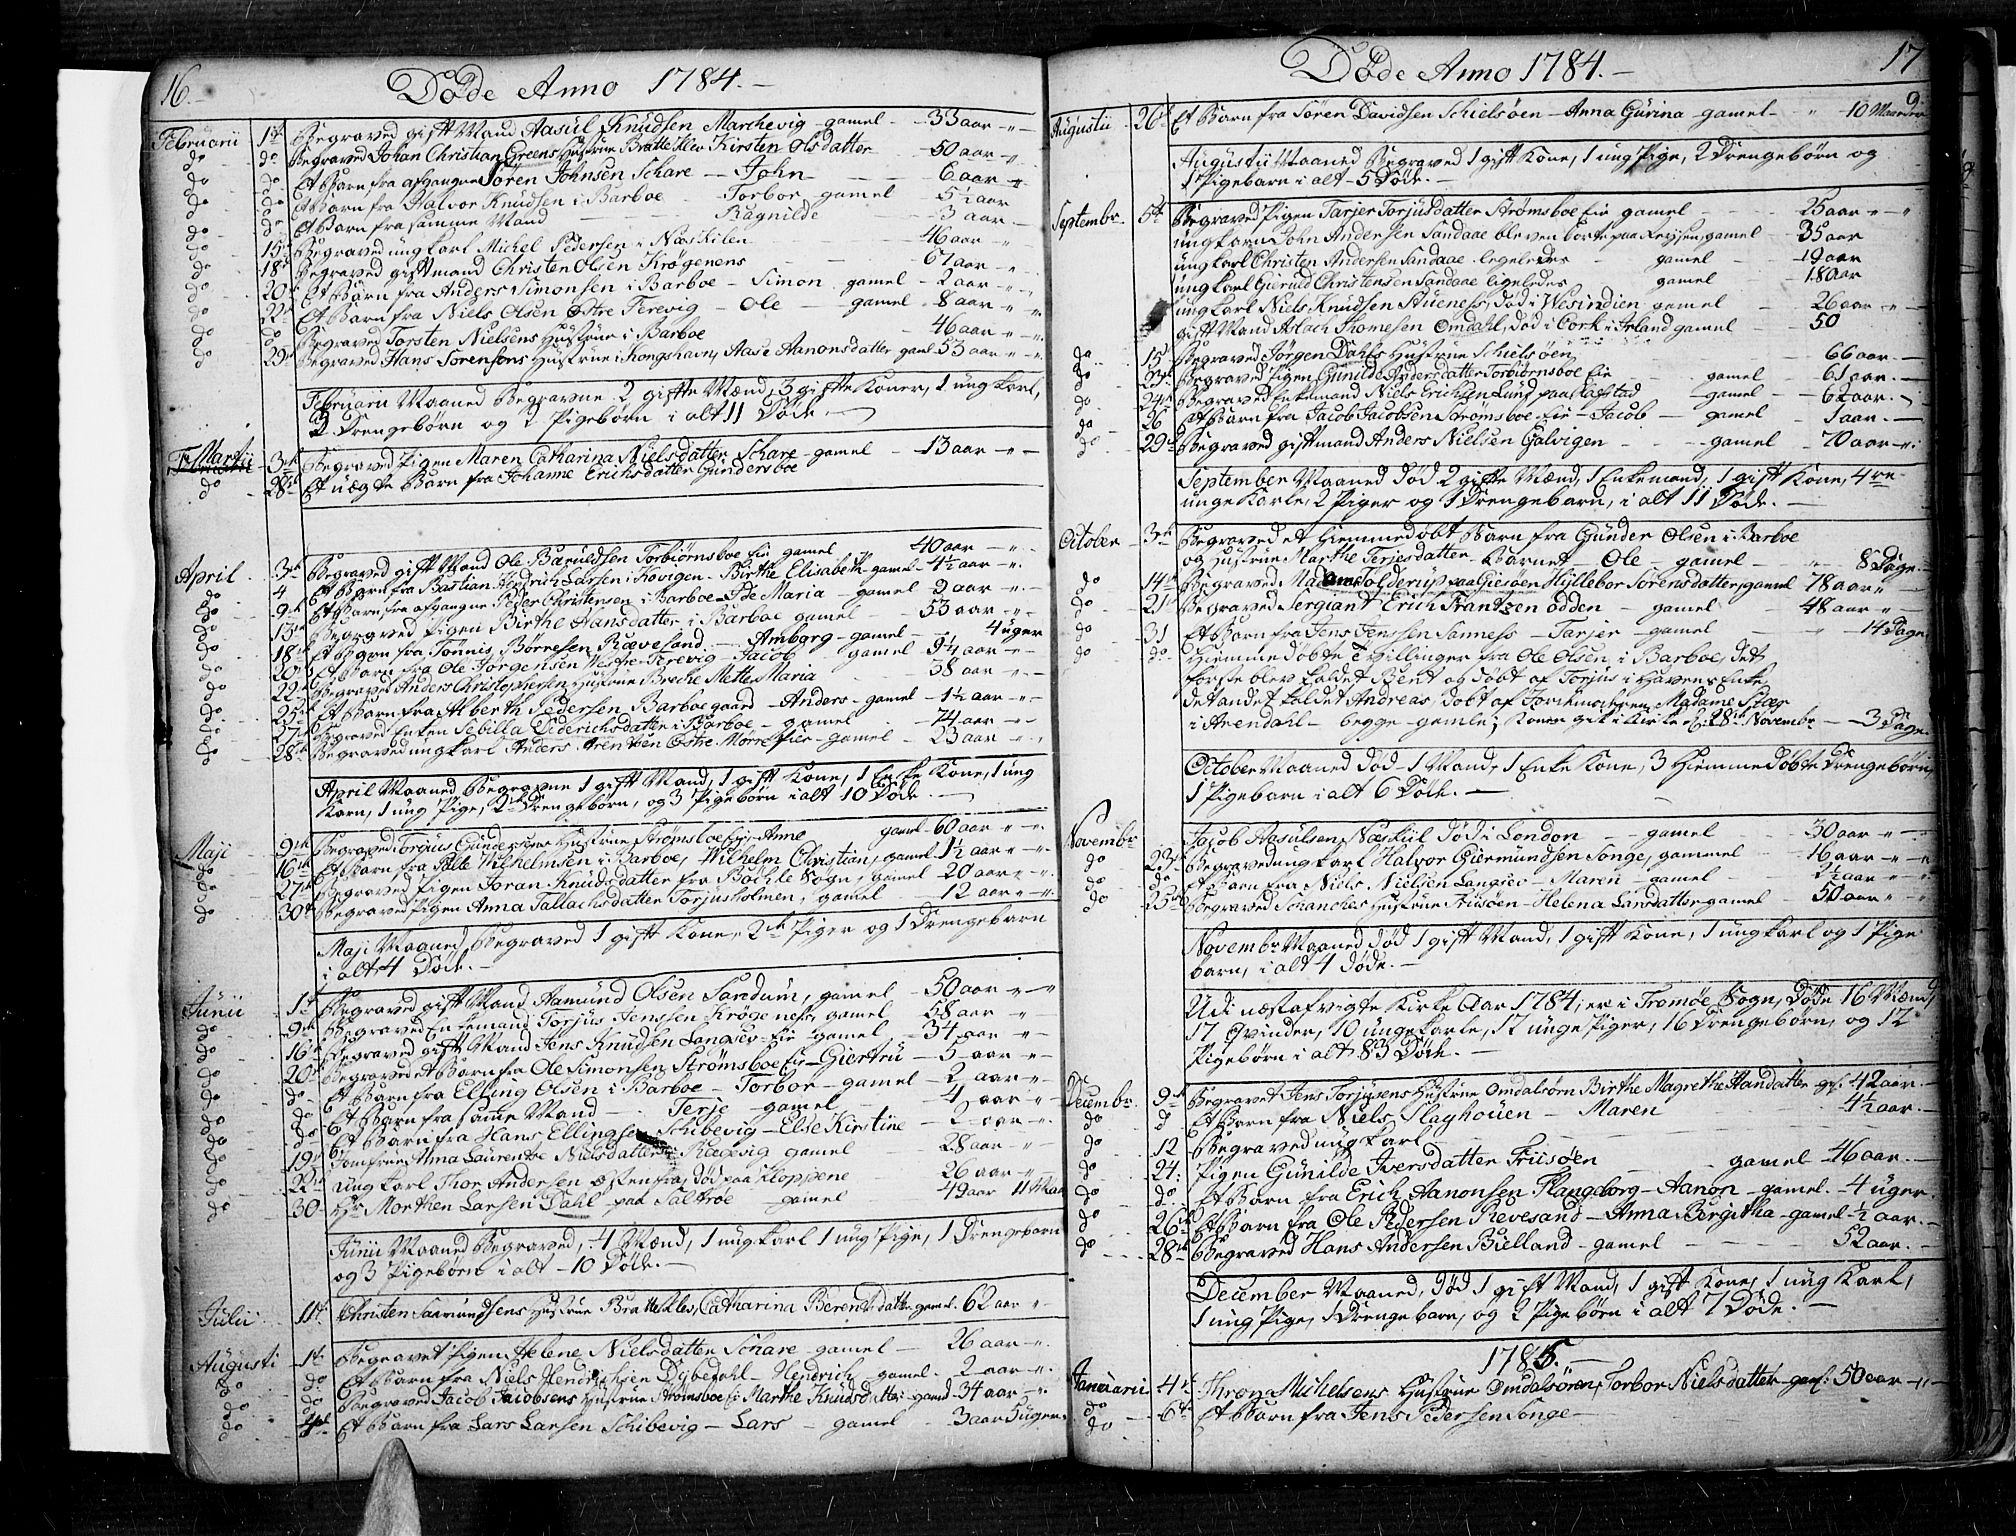 16.
Døde Anno 1784.
Februarii 1te Begraved gift Mand Aasul Knudsen Marchevig gamel 33 aar
do do Begraved Johan Christian Greens Hustrue Bratteklev Kirsten Olsdatter 50 aar
do do Et Barn fra afgangne Søren Johnsen Schare – John 6 aar
do do Et Barn fra Halvor Knudsen i Barboe – Torbor gamel 5½ aar
do do Et Barn fra samme Mand – Ragnilde 3 aar
do 15de Begraved ung karl Michel Pedersen i Næskilen 46 aar
do 18de Begraved gift mand Christen Olsen Krøgenens 67 aar
do 20de Et Barn fra Anders Simonsen i Barboe – Simon gamel 2 aar
do 22de Et Barn fra Niels Olsen Østre Ferevig – Ole gamel 8 aar
do do Begraved Torsten Nielsens Hustrue i Barboe 46 aar
do 29de Begraved Hans Sørensøns Hustrue i Kongshavn, Aase Aanonsdatter gaml 53 aar
Februarii Maaned Begravne 2 gifte Mænd, 3 gifte Koner, 1 ung karl,
3 Drengebørn og 2 Pigebørn i alt 11 Døde.
Martii 3de Begraved Pigen Maren Catharina Nielsdatter Schare gamel 13 aar
do 28de Et uægte Barn fra Johanne Erichsdatter Gundersboe
April 3de Begraved gift Mand Ole Baruldsen Torbiørnsboe Eie gamel 40 aar
do 4 Et Barn fra Bastian Hendrich Larsen i Kovigen – Birthe Elisabeth gamel 4½ aar
do 9de Et Barn fra afgangne Peder Christensen i Barboe – Ide Maria gamel 2 aar
do 13de Begraved Pigen Birthe Hansdatter i Barboe gamel 53 aar
do 18de Et Barn fra Tønnis Børresen Rævesand – Amborg gamel 4 uger
do 20de Et Barn fra Ole Jørgensen Westre Ferevig – Jacob gamel 9¼ aar
do 22de Begravet Anders Christophersen Hustrue Brecke Mette Maria 38 aar
do 25de Et Barn fra Alberth Pedersen Barboegaard – Anders gamel 1½ aar
do 27de Begraved Enken Sebilla Diderichsdatter i Barboe gamel 74 aar
do 28de Begraved ungkarl Anders Arentsen Østre Mørrefier gamel 23 aar
April Maaned Begravne 1 gift Mand, 1 gift Kone, 1 Enke Kone, 1 ung
Karn, 1 ung Pige, 2de Drengebørn, og 3 Pigebørn i alt 10 Døde.
Maji 9de Begraved Torgius Gundersens Hustrue Strømsboe Eie, Anne gamel 60 aar
do 16de Et Barn fra Palle Wilhelmsen i Barboe, Wilhelm Christian, gamel 1½ aar
do 27de Begraved Pigen Joran Knudsdatter fra Bochle Sogn, gamel 20 aar
do 30te Begraved Pigen Anna Tallachsdatter Torjusholmen, gamel 12 aar
Maji Maaned Begraved 1 gift Kone, 2de Piger og 1 Drengebarn
i alt 4 Døde.
Junii 1te Begraved gift Mand Aamund Olsen Sandum, gamel 50 aar
do 9de Begraved Enkemand Torjus Jenssen Krøgenes, gamel 58 aar
do 16de Begraved gift Mand Jens Knudsen Langsev Eie gamel 34 aar
do 20de Begraved et Barn fra Ole Simonsen Strømsboe Eie – Giertru 5 aar
do do Et Barn fra Elling Olsen i Barboe – Torbor gamel 2 aar
do do Et Barn fra same Mand – Terje gamel 4 aar
do do Et Barn fra Hans Ellingsen Schibevig – Else Kirstine 2 aar
do 19de Jomfrue Anna Laurentze Nielsdatter Kiegevig gamel 28 aar
do 22de ung karl Thor Andersen Østenfra, død paa Kloppene 26 aar
do 30 Hr Morthen Larsen Dahl paa Saltrøe gamel 49 aar 11 Maa
Junii Maaned Begraved, 4 Mænd, 1 ung karl 1 ung Pige, 1 Drengebarn
og 3 Pigebørn i alt 10 Døde.
Julii 11te Christen Saamundsens Hustrue Bratteklev, Catharina Berentsdatter gamel 62 aar
Augusti 1te Begravet Pigen Helene Nielsdatter Schare gamel 26 aar
do do Et Barn fra Niels Hendrichsen Dybedahl – Hendrich gamel 2 aar
do do Begraved Jacob Jacobsens Hustrue Strømsboe Eie Marthe Knudsdatter gamel 34 aar
do Et Barn fra Lars Larsen Schibevig – Lars gamel 3 aar 5 uger
17
9.
Døde Anno 1784.
Augustii 26de Et Barn fra Søren Davidsen Schielsøen – Anna Gurina gamel 10 Maaneder
Augustii Maaned Begraved 1 gift Kone, 1 ung Pige, 2 Drengebørn og
1 Pigebarn i alt 5 Døde.
Septembr. 5te Begraved Pigen Tarjer Torjusdatter Strømsboe Eie gamel 25 aar
ungkarn John Andersen Sandaae bleven borte paa Reijsen, gamel 35 aar
ungkarl Christen Andersen Sandaae ligeledes gamel 19 aar
ungkarl Gieruld Christensen Sandaae ligeledes gamel 18 aar
ungkarl Niels Knudsen Stueness, død i Wesindien gamel 26 aar
gift Mand Aslach Thomesen Omdahl, død i Cork i Irland gamel 50
do 15de Begraved Jørgen Dahls Hustrue Schielsøen 66 aar
do 23de Begraved Pigen Gunilde Andersdatter Torbiørnsboe Eie gamel 61 aar
do 24de Begraved Enkemand Niels Erichsen Lund paa Ragstad gamel 62 aar
do 26 Et Barn fra Jacob Jacobsen Strømsboe Eie – Jacob gamel 1 aar
do 29de Begraved giftmand Anders Nielsen Galvigen gamel 70 aar
September Maaned død 2 gifte Mænd, 1 Enkemand, 1 gift Kone, 4re
unge Karle, 2 Piger og 1 Drengebarn, i alt 11 Døde.
October 3de Begraved et Hiemmedøbt Barn fra Gunder Olsen i Barboe
og Hustrue Marthe Terjesdatter – Barnet Ole gamel 8 Dage
do 14de Begraved Madame Tolderup paa Giesøen Hyllebor Sørensdatter, gamel 78 aar
do 21de Begraved Sergiant Erich Frantzen Odden gamel 48 aar
do 31 Et Barn fra Jens Jenssen Sanness – Tarjer gamel 14 Dage
do do Hiemmedøbte Tvillinger fra Ole Olsen i Barboe, det
første blev kaldet Bent og døbt af Torjus i Havens Enke
det andet kaldet Andreas, døbt af Jordemoderen Madame Spær
i Arendahl – begge gamle; Konen gik i Kirke d: 28de Novembr 3 Dage
October Maaned død 1 Mand, 1 Enke Kone, 3 Hiemmedøbte Drengebørn
1 Pigebarn i alt 6 Døde.
Novembr Jacob Aasulsen Næskiil død i London gamel 30 aar
do 23de Begraved ungkarl Halvor Giermundsen Songe, gammel 16 aar
do do Et Barn fra Niels Nielsen Langsev – Maren gamel 2½ aar
do 25de Begraved Schanches Hustrue Friisøen – Helena Larsdatter gamel 50 aar
Novembr Maaned død 1 gift Mand, 1 gift Kone, 1 ung karl og 1 Pige
barn, i alt 4 døde.
Udi næstafvigte Kirke Aar 1784, er i Tromøe Sogn, døde 16 Mænd
17 Qvinder, 10 unge karle, 12 unge Piger, 16 Drengebørn, og 12
Pigebørn i alt 83 Døde.
Decembr. 9de Begravet Jens Torjusens Hustrue Omdalsøen Birthe Magrethe Handatter gl. 42 aar
do d Et Barn fra Niels Playhouen – Maren 4½ aar
do 12 Begraved ung karl
do 24. Pigen Gunilde Iversdatter Friisøen gamel 46 aar
do do Et Barn fra Erich Aanonsen Plangeborg – Aanon gamel 4 uger
do 26de Et Barn fra Ole Pedersen Revesand – Anna Bergitha gamel ½ aar
do 28de Begraved Hans Andersen Bielland gamel 52 aar
December Maaned, død 1 gift Mand, 1 gift Kone, 1 ung Karl,
1 ung Pige, 1 Drengebarn, og 2 Pigebørn i alt 7 Døde.
1785.
Januarii 4de Thron Michelsens Hustrue Omdalsøen, Torbor Nielsdatter gaml: 50 aar
do 6te Et Barn fra Jens Pedersen Songe
do